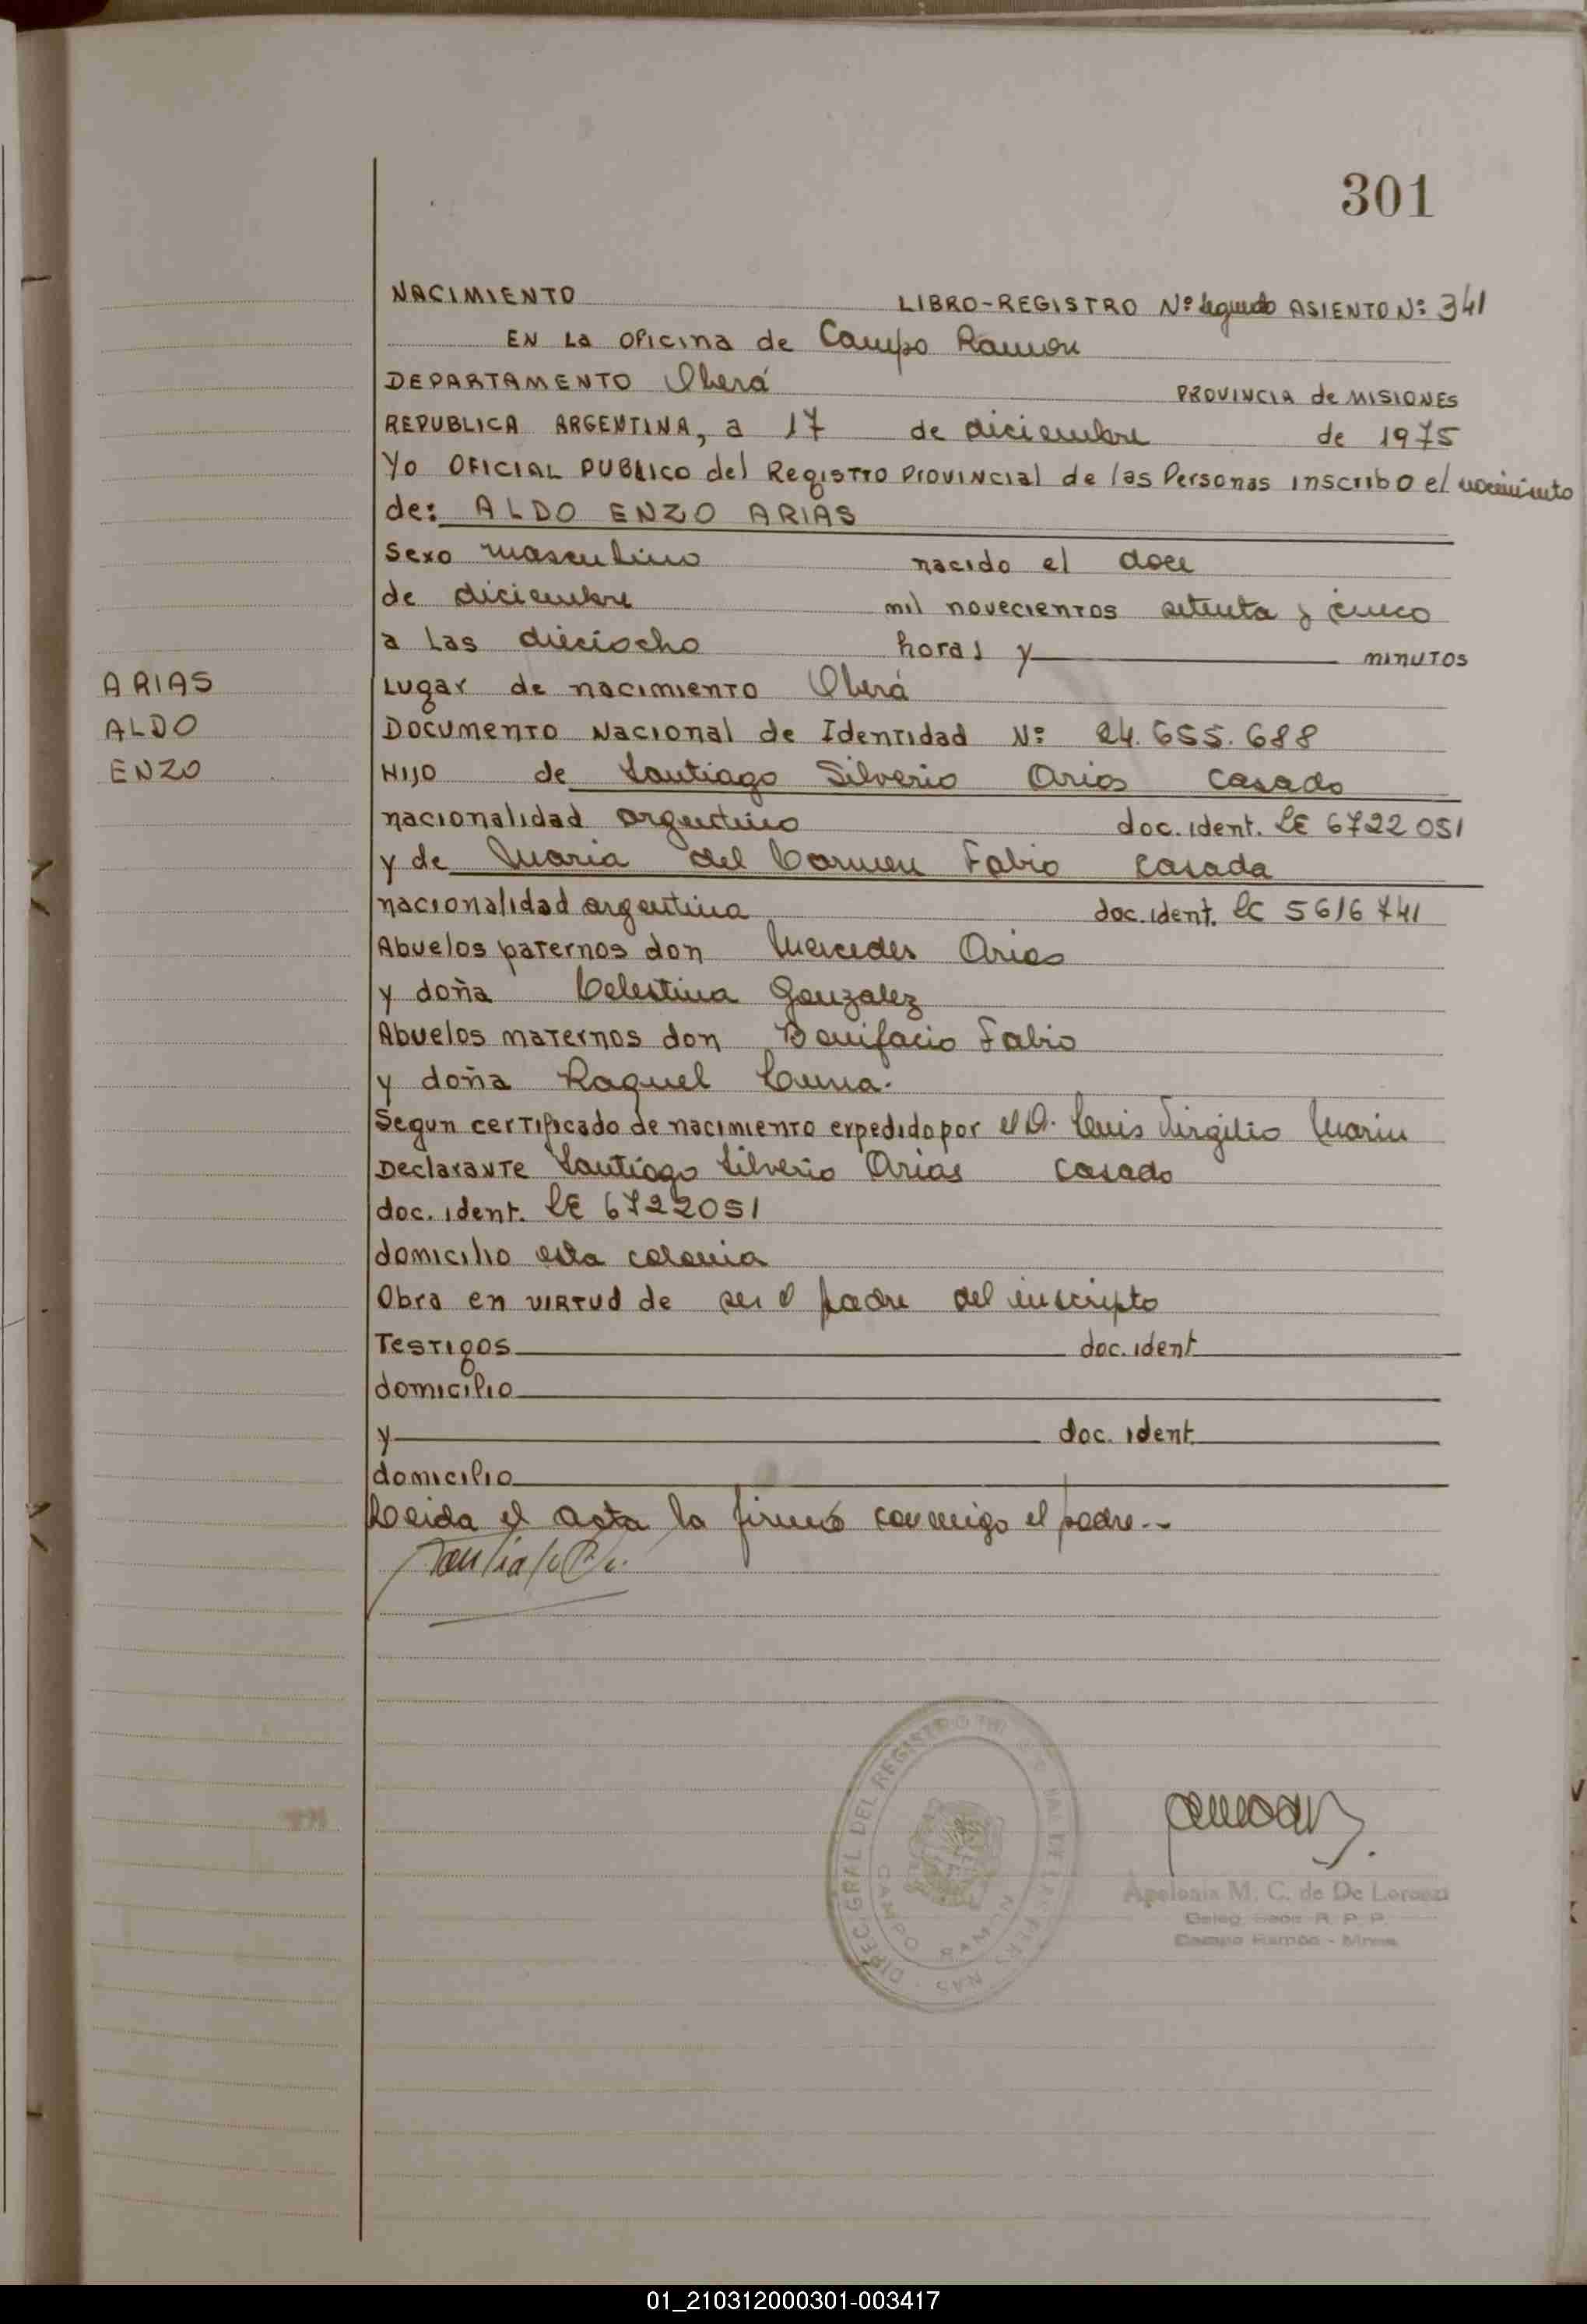 301
NACIMIENTO LIBRO-REGISTRO Nº Segundo ASIENTO Nº: 341
EN LA OFICINA de Campo Ramon
DEPARTAMENTO Oberá PROVINCIA de MISIONES
REPUBLICA ARGENTINA, a 17 de diciembre de 1975
Yo OFICIAL PUBLICO del REGISTRO PROVINCIAL de las Personas inscribo el nacimiento
de: ALDO ENZO ARIAS
Sexo masculino nacido el doce
de diciembre mil novecientos setenta y cinco
a las dieciocho horas y minutos
ARIAS
ALDO
ENZO
Lugar de nacimiento Oberá
Documento Nacional de Identidad Nº 24.655.688
HIJO de Santiago Silverio Arias casado
nacionalidad argentino doc. ident. LE 6722051
y de Maria del Carmen Fabio casada
nacionalidad argentina doc. ident. LC 5616741
Abuelos paternos don Mercedes Arias
y doña Celestina Gonzalez
Abuelos maternos don Bonifacio Fabio
y doña Raquel
Segun certificado de nacimiento expedido por el D. Luis Virgilio Marin
Declarante Santiago Silverio Arias casado
doc. ident. LE 6722051
domicilio esta colonia
Obra en VIRTUD de ser el padre del inscripto
Testigos doc. ident
domicilio
y doc. ident.
domicilio
Leida el acta la firmó conmigo el padre.--
DIREC. GRAL DEL REGISTRO DE LAS PERSONAS
CAMPO RAMON
Apolonia M. C. de De Lorenzi
R. P. P.
Campo Ramón - Mnes.
01_210312000301-003417